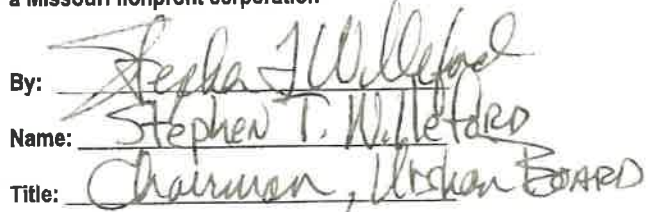 a Missouri nonprofit corporation
By: Stephen T Willeford
Name: Stephen T. Willeford
Title: Chairman, Urshan BOARD